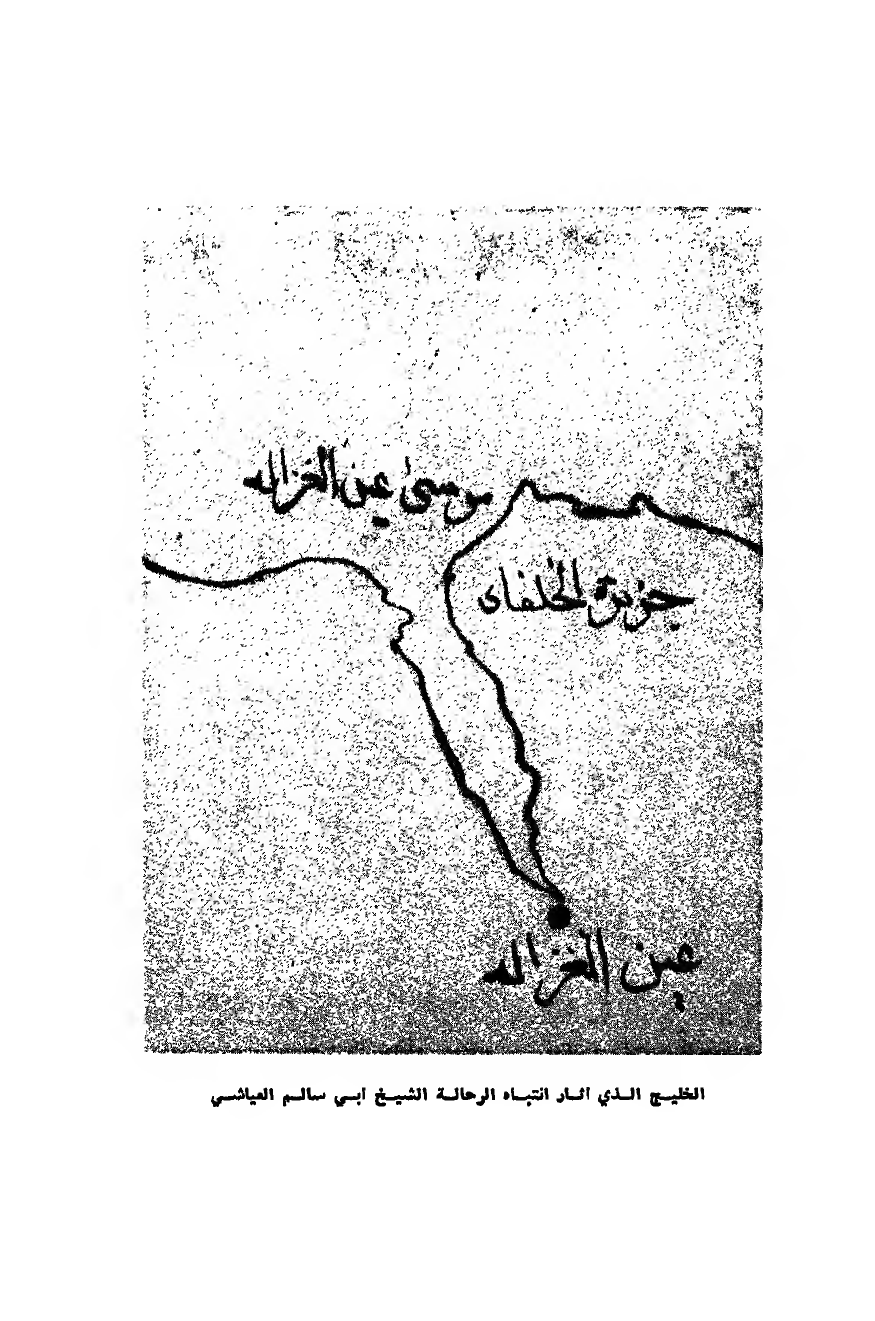 مرسى عين الغزاله
جزيرة الخلفاى
عين الغزاله
الخليـج الـذي أثـار انتبـاه الرحالـة الشيـخ أبـي سالـم العياشـي